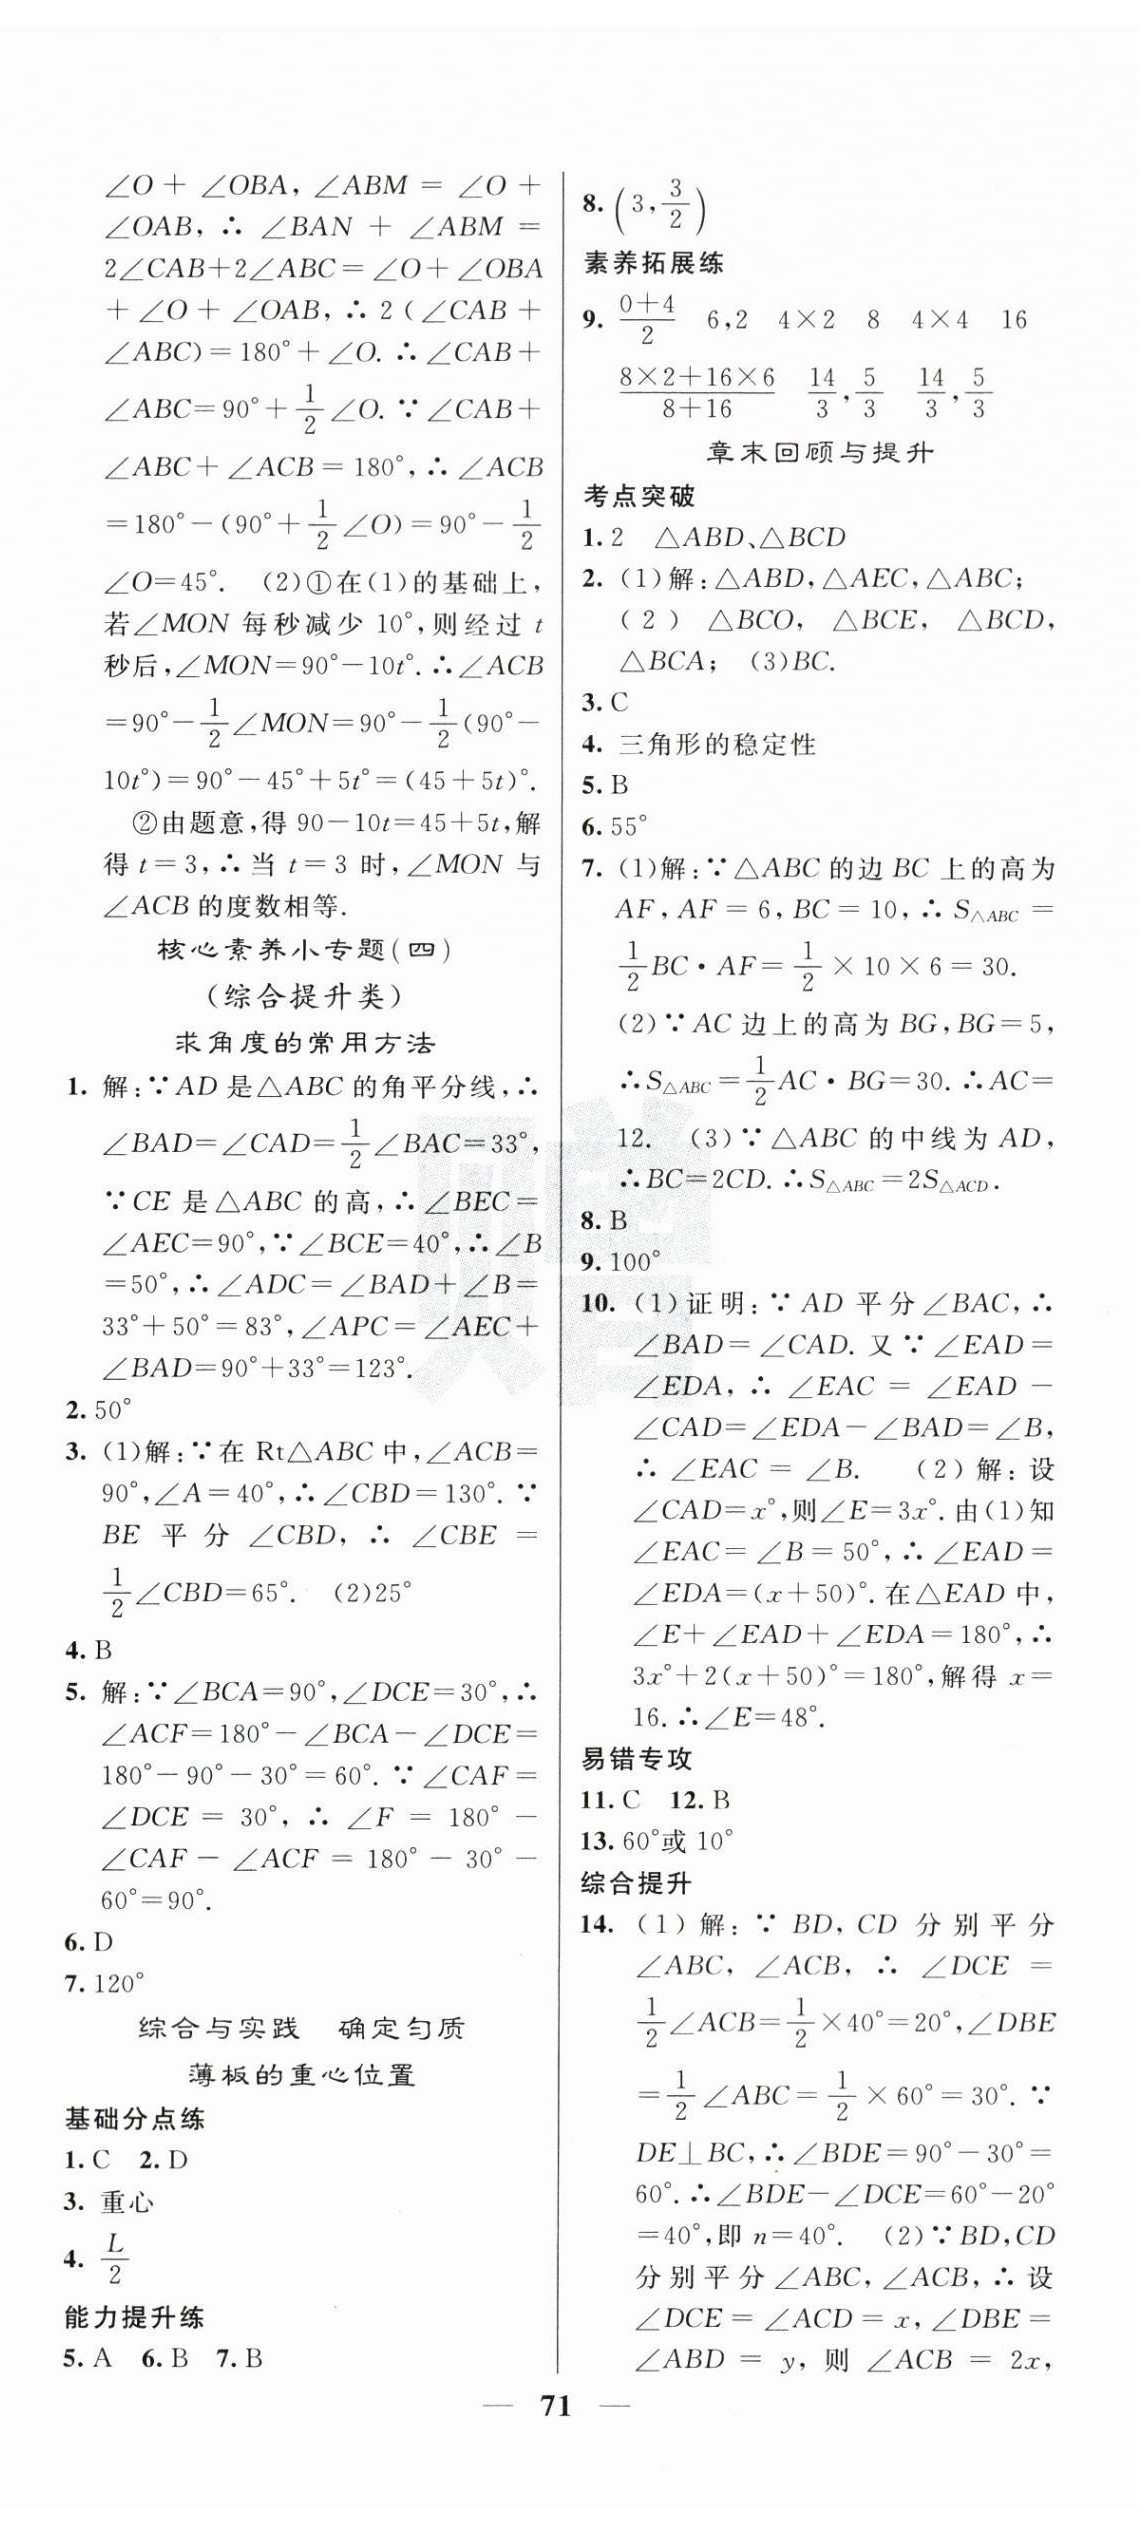 ∠O + ∠OBA, ∠ABM = ∠O +
∠OAB, ∴ ∠BAN + ∠ABM =
2∠CAB+2∠ABC=∠O+∠OBA
+∠O+∠OAB, ∴ 2(∠CAB+
∠ABC)=180°+∠O. ∴∠CAB+
∠ABC=90°+1/2∠O. ∵∠CAB+
∠ABC+∠ACB=180°, ∴∠ACB
=180°-(90°+1/2∠O)=90°-1/2
∠O=45°. (2)①在(1)的基础上,
若∠MON 每秒减少 10°,则经过 t
秒后,∠MON=90°-10t°. ∴∠ACB
=90°-1/2∠MON=90°-1/2(90°-
10t°)=90°-45°+5t°=(45+5t)°.
②由题意,得 90-10t=45+5t,解
得 t=3, ∴当 t=3 时,∠MON 与
∠ACB 的度数相等.
核心素养小专题(四)
(综合提升类)
求角度的常用方法
1. 解:∵AD 是△ABC 的角平分线,∴
∠BAD=∠CAD=1/2∠BAC=33°,
∵CE 是△ABC 的高,∴∠BEC=
∠AEC=90°,∵∠BCE=40°,∴∠B
=50°,∴∠ADC=∠BAD+∠B=
33°+50°=83°,∠APC=∠AEC+
∠BAD=90°+33°=123°.
2. 50°
3. (1)解:∵在 Rt△ABC 中,∠ACB=
90°,∠A=40°,∴∠CBD=130°. ∵
BE 平分 ∠CBD, ∴ ∠CBE =
1/2∠CBD=65°. (2)25°
4. B
5. 解:∵∠BCA=90°,∠DCE=30°,∴
∠ACF=180°-∠BCA-∠DCE=
180°-90°-30°=60°. ∵∠CAF=
∠DCE = 30°, ∴ ∠F = 180° -
∠CAF - ∠ACF = 180° - 30° -
60°=90°.
6. D
7. 120°
综合与实践 确定匀质
薄板的重心位置
基础分点练
1. C 2. D
3. 重心
4. L/2
能力提升练
5. A 6. B 7. B
8. (3,3/2)
素养拓展练
9. (0+4)/2 6,2 4×2 8 4×4 16
(8×2+16×6)/(8+16) 14/3,5/3 14/3,5/3
章末回顾与提升
考点突破
1. 2 △ABD、△BCD
2. (1)解:△ABD,△AEC,△ABC;
(2) △BCO, △BCE, △BCD,
△BCA; (3)BC.
3. C
4. 三角形的稳定性
5. B
6. 55°
7. (1)解:∵△ABC 的边 BC 上的高为
AF,AF=6,BC=10,∴S△ABC=
1/2BC·AF=1/2×10×6=30.
(2)∵AC 边上的高为 BG,BG=5,
∴S△ABC=1/2AC·BG=30. ∴AC=
12. (3)∵△ABC 的中线为 AD,
∴BC=2CD. ∴S△ABC=2S△ACD.
8. B
9. 100°
10. (1)证明:∵AD 平分∠BAC,∴
∠BAD=∠CAD. 又∵∠EAD=
∠EDA, ∴ ∠EAC = ∠EAD -
∠CAD=∠EDA-∠BAD=∠B,
∴ ∠EAC = ∠B. (2)解:设
∠CAD=x°,则∠E=3x°. 由(1)知
∠EAC=∠B=50°,∴∠EAD=
∠EDA=(x+50)°. 在△EAD 中,
∠E+∠EAD+∠EDA=180°,∴
3x°+2(x+50)°=180°,解得 x=
16. ∴∠E=48°.
易错专攻
11. C 12. B
13. 60°或 10°
综合提升
14. (1)解:∵ BD, CD 分别平分
∠ABC, ∠ACB, ∴ ∠DCE =
1/2∠ACB=1/2×40°=20°,∠DBE
=1/2∠ABC=1/2×60°=30°. ∵
DE⊥BC,∴∠BDE=90°-30°=
60°. ∴∠BDE-∠DCE=60°-20°
=40°,即 n=40°. (2)∵BD,CD
分别平分∠ABC,∠ACB,∴设
∠DCE=∠ACD=x,∠DBE=
∠ABD = y, 则 ∠ACB = 2x,
— 71 —